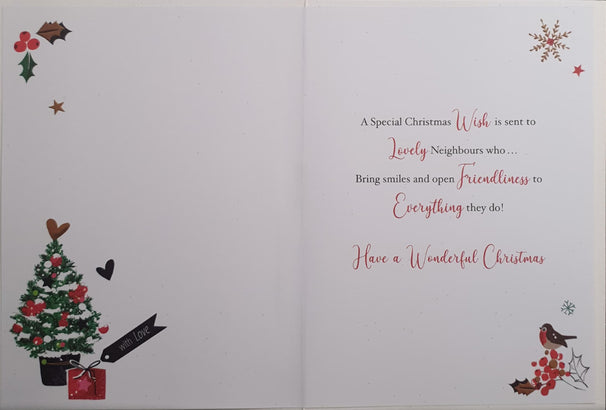 with Love
A Special Christmas Wish is sent to
Lovely Neighbours who...
Bring smiles and open Friendliness to
Everything they do!
Have a Wonderful Christmas